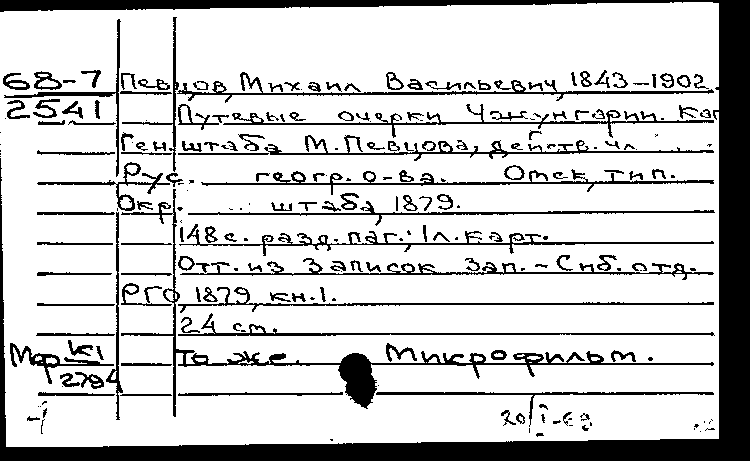 68-7 Певцов, Михаил Васильевич, 1843-1902.
2541 Путевые очерки Чжунгарии. Кап
Ген. штаба М. Певцова, действ. чл
Рус. геогр. о-ва. Омск, тип.
Окр. штаба, 1879.
148 с. разд. паг.; 1 л. карт.
Отт. из Записок Зап.-Сиб. отд.
РГО, 1879, кн. I.
24 см.
Мф К1 То же. Микрофильм.
2794
20/I-68